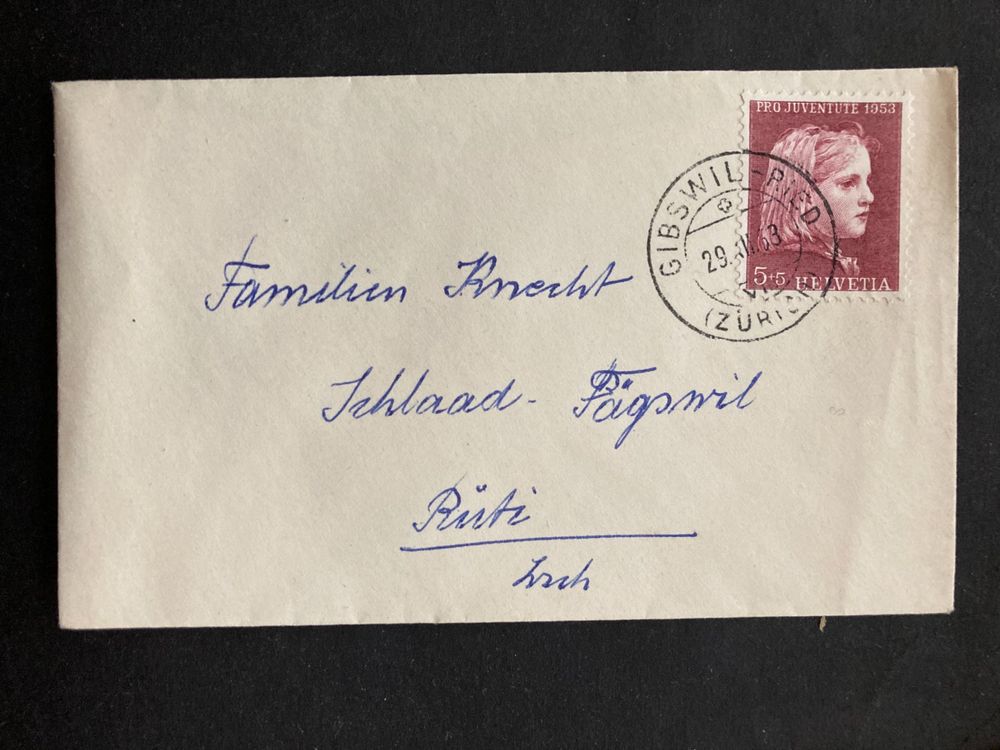 PRO JUVENTUTE 1953
5+5 HELVETIA
GIBSWIL-RIED
29.XII.53
(ZÜRICH)
Familien Knecht
Schlaad - Fägswil
Rüti
Zrch